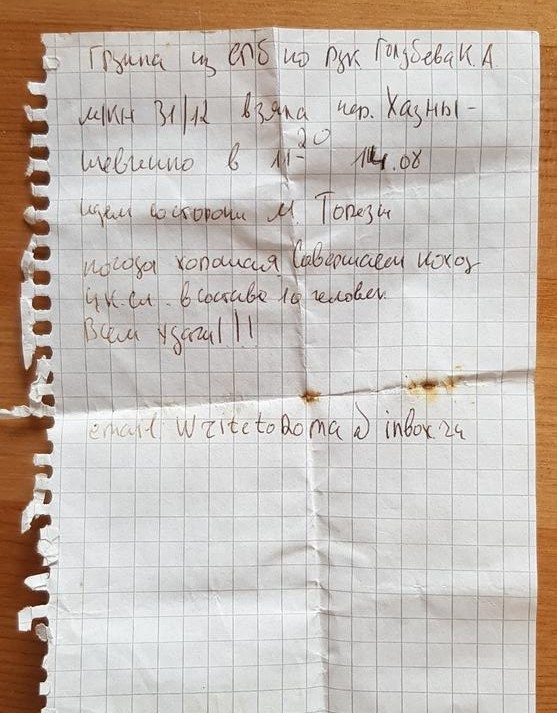 Группа из СПб по рук Голубева К.А
М/КК 31/12 взяла пер. Хазны-
шевцино в 11-20 14.08
идем со стороны М Топези
погода хорошая Совершаем поход
4 к.сл. в составе 10 человек
Всем удачи!!!
email WritetoRoma@inbox.ru